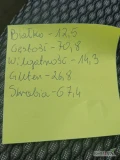 Białko - 12,5
Gęstość - 70,8
Wilgotność - 14,3
Gluten - 26,8
Skrobia - 67,4